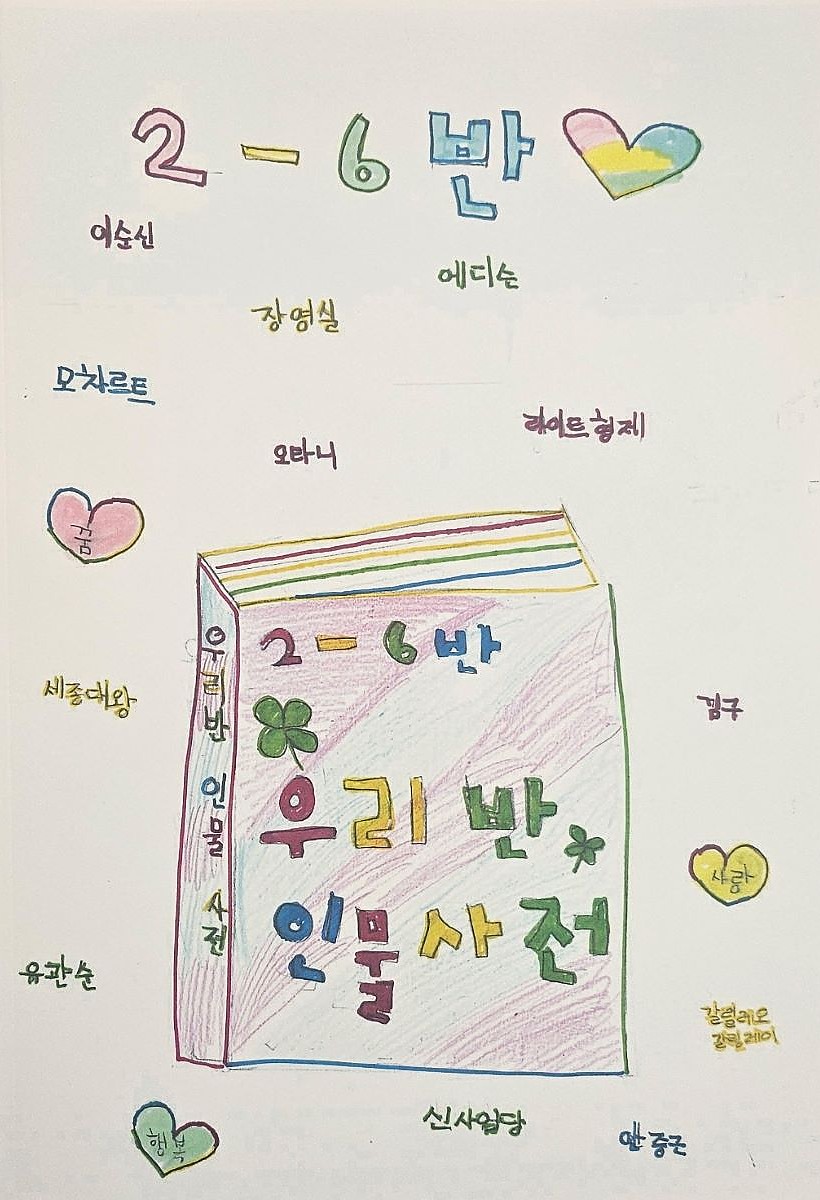 2-6반
이순신
에디슨
장영실
모차르트
라이트형제
오타니
꿈
2-6반
우리반 인물 사전
세종대왕
김구
우리 반
사랑
인물사전
유관순
갈릴레오
갈릴레이
신사임당
안중근
행복